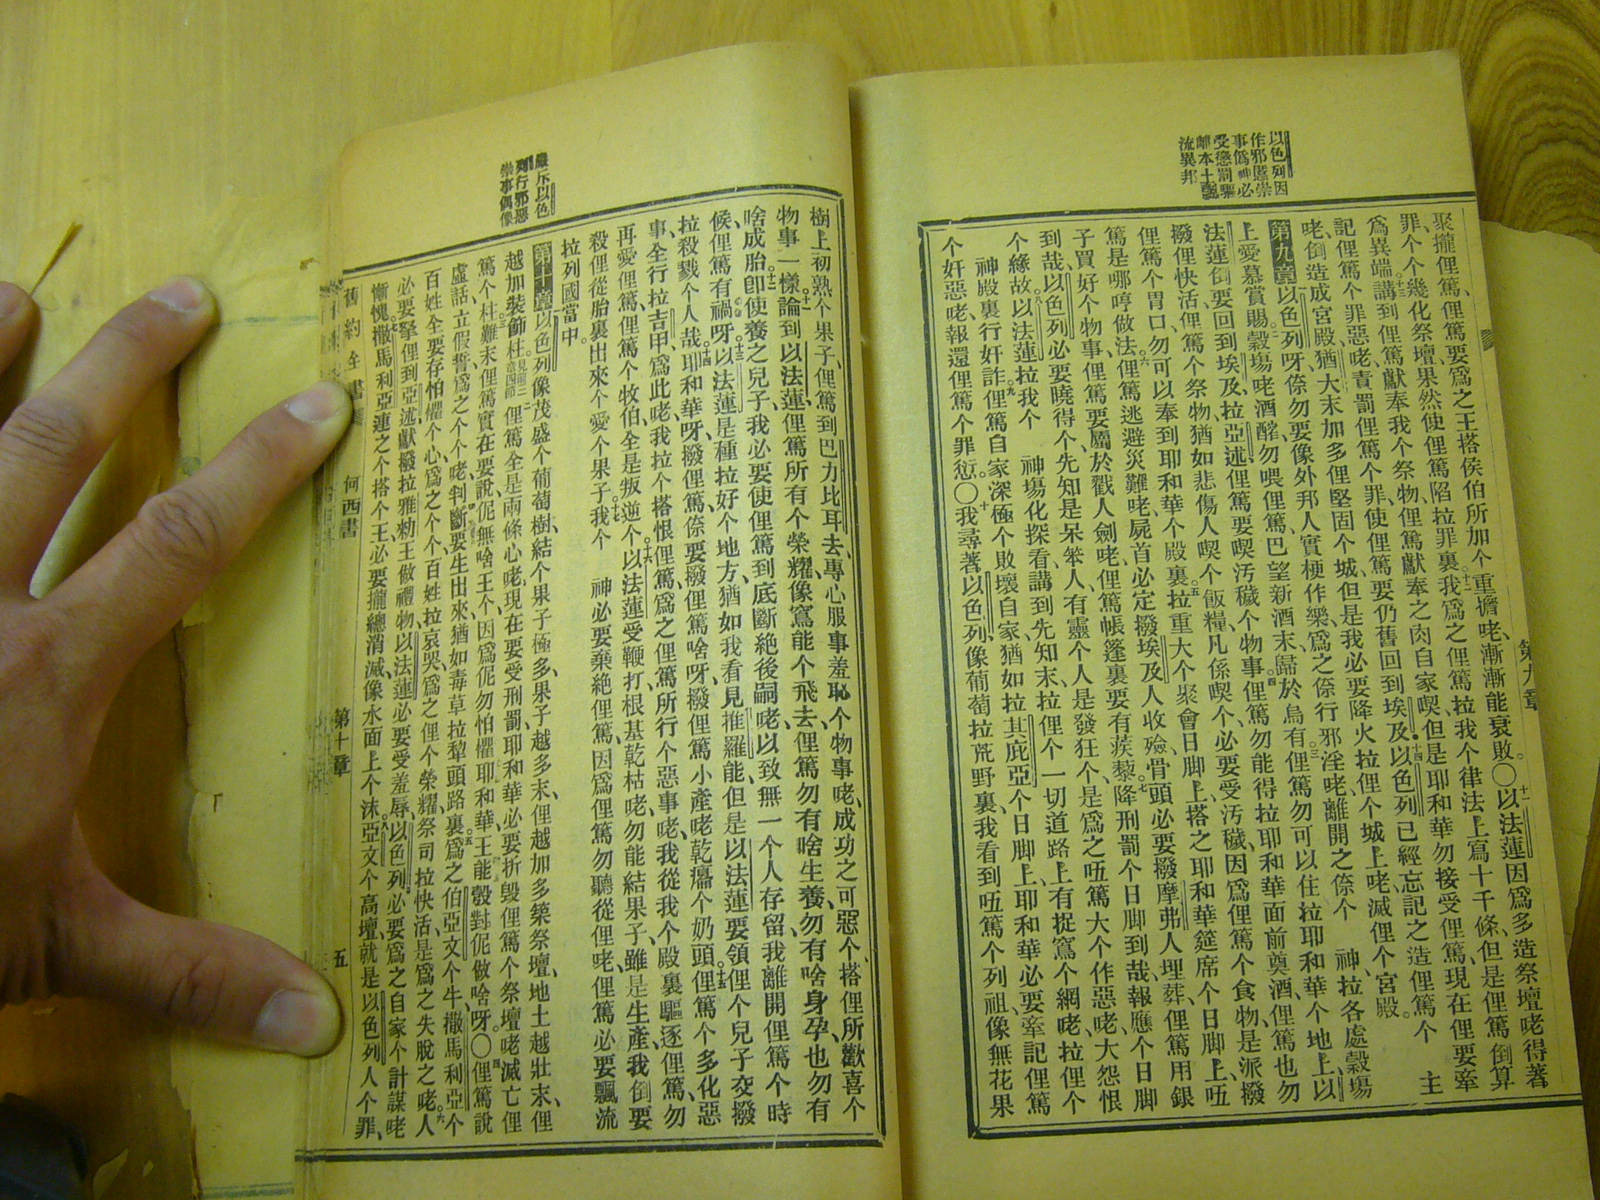 以色列因
作邪慝崇
事僞神必
受懲罰驅
離本土
流異邦
聚攏俚篤、俚篤要爲之王搭侯伯所加个重擔咾、漸漸能衰敗。〇十一以法蓮因爲多造祭壇咾得著
罪、个个幾化祭壇果然使俚篤陷拉罪裏、十二我爲之俚篤拉我个律法上寫十千條、但是俚篤倒算
爲異端、十三講到俚篤獻奉我个祭物、俚篤獻奉之肉自家喫、但是耶和華勿接受俚篤、現在俚要牽
記俚篤个罪惡咾責罰俚篤个罪、使俚篤要仍舊回到埃及、十四以色列已經忘記之造俚篤个　主
咾、倒造成宮殿、猶大末加多俚堅固个城、但是我必要降火拉俚个城上咾、滅俚个宮殿。
第九章以色列呀、倷勿要像外邦人實梗作樂、爲之倷行邪淫咾離開之倷个　神、拉各處穀場
上愛慕賞賜、二穀場咾酒醡勿喂俚篤、巴望新酒末歸於烏有、三俚篤勿可以住拉耶和華个地上、以
法蓮倒要回到埃及、拉亞述俚篤要喫汚穢个物事、四俚篤勿能得拉耶和華面前奠酒、俚篤也勿
撥俚快活、俚篤个祭物猶如悲傷人喫个飯糧、凡係喫个必要受汚穢、因爲俚篤个食物是派撥
俚篤个胃口、勿可以奉到耶和華个殿裏、五拉重大个聚會日脚上搭之耶和華筵席个日脚上、㕶
篤是哪哼做法、六俚篤逃避災難咾、屍首必定撥埃及人收殮、骨頭必要撥摩弗人埋葬、俚篤用銀
子買好个物事、俚篤要屬於戳人劍咾、俚篤帳篷裏要有蒺藜、七降刑罰个日脚到哉、報應个日脚
到哉、以色列必要曉得个、先知是呆笨人、有靈个人是發狂个、是爲之㕶篤大个作惡咾大怨恨
个緣故、八以法蓮拉我个　神場化探看、講到先知末、拉俚个一切道路上有捉窩个網咾、拉俚个
　神殿裏行奸詐、九俚篤自家深極个敗壞自家、猶如拉其庇亞个日脚上、耶和華必要牽記俚篤
个奸惡咾、報還俚篤个罪愆。〇十我尋著以色列、像葡萄拉荒野裏、我看到㕶篤个列祖、像無花果
第九章
嚴斥以色
列行邪慝
崇事偶像
樹上初熟个果子、俚篤到巴力比耳去、專心服事羞恥个物事咾、成功之可惡个、搭俚所歡喜个
物事一樣、十一論到以法蓮、俚篤所有个榮耀像窩能个飛去、俚篤勿有啥生養、勿有啥身孕、也勿有
啥成胎、十二即使養之兒子、我必要使俚篤到底斷絕後嗣咾、以致無一个人存留、我離開俚篤个時
候、俚篤有禍呀、十三以法蓮是種拉好个地方、猶如我看見推羅能、但是以法蓮要領俚个兒子交撥
拉殺戮个人哉、十四耶和華呀、撥俚篤、倷要撥俚篤啥呀、撥俚篤小產咾乾癟个奶頭、十五俚篤个多化惡
事、全行拉吉甲、爲此咾、我拉个搭恨俚篤、爲之俚篤所行个惡事咾、我從我个殿裏驅逐俚篤、勿
再愛俚篤、俚篤个牧伯全是叛逆个、十六以法蓮受鞭打、根基乾枯咾、勿能結果子、雖是生產、我倒要
殺俚從胎裏出來个愛个果子、十七我个　神必要棄絕俚篤、因爲俚篤勿聽從俚咾、俚篤必要飄流
拉列國當中。
第十章以色列像茂盛个葡萄樹、結个果子極多、果子越多末、俚越加多築祭壇、地土越壯末、俚
越加裝飾柱、見龍三章四節二俚篤全是兩條心咾、現在要受刑罰、耶和華必要折毀俚篤个祭壇咾、滅亡俚
篤个柱、三難末俚篤實在要說、伲無啥王个、因爲伲勿怕懼耶和華、王能彀對伲做啥呀。〇四俚篤說
虛話、立假誓、爲之个个咾、判斷要生出來、猶如毒草拉犂頭路裏、五爲之伯亞文个牛、撒馬利亞个
百姓全要存怕懼个心、爲之个个、百姓拉哀哭、爲之俚个榮耀、祭司拉快活、是爲之失脫之咾、六人
必要拏俚到亞述、獻撥拉雅勒王做禮物、以法蓮必要受羞辱、以色列必要爲之自家个計謀咾
慚愧、七撒馬利亞連之个搭个王、必要攏總消滅、像水面上个沫、八亞文个高壇、就是以色列人个罪、
舊約全書　何西書　第十章　五